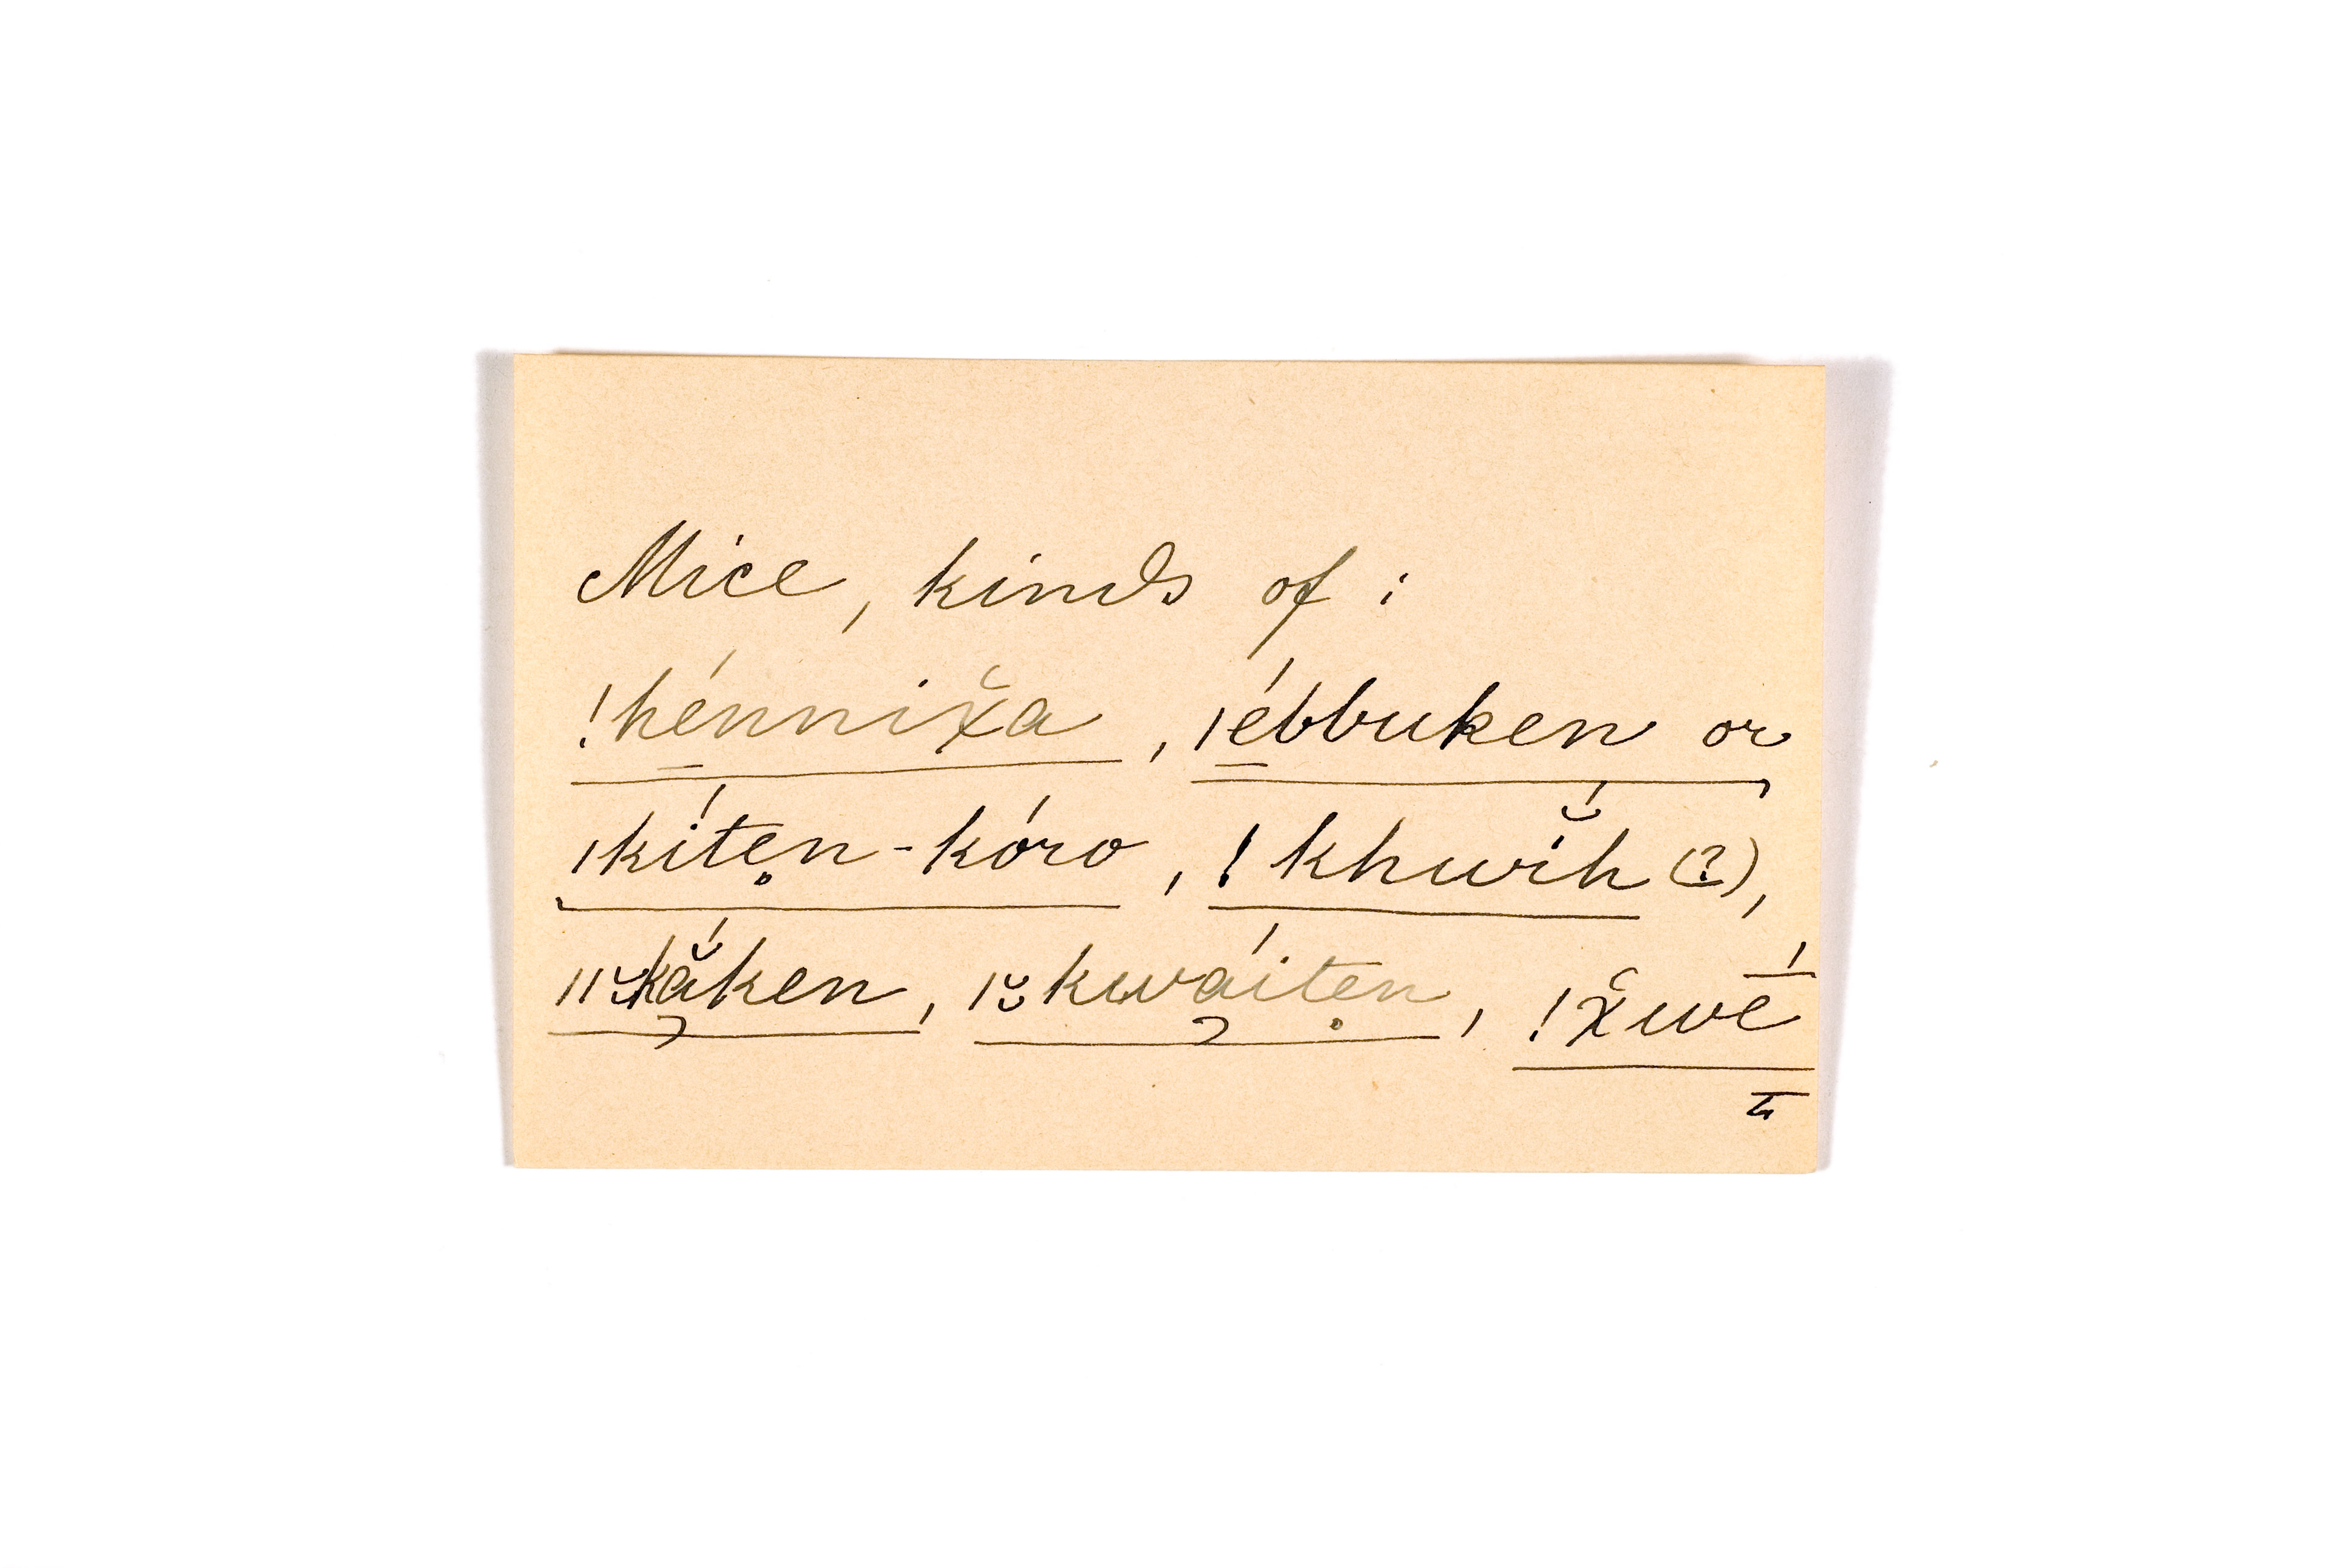 Mice, kinds of :
!hé̱nnix̆a, |é̳bbuken or
|kíte̥n-kóro, !khwĭ́h (?),
||k̆ắken, |k̆wáite̥n, !x̆wé̄